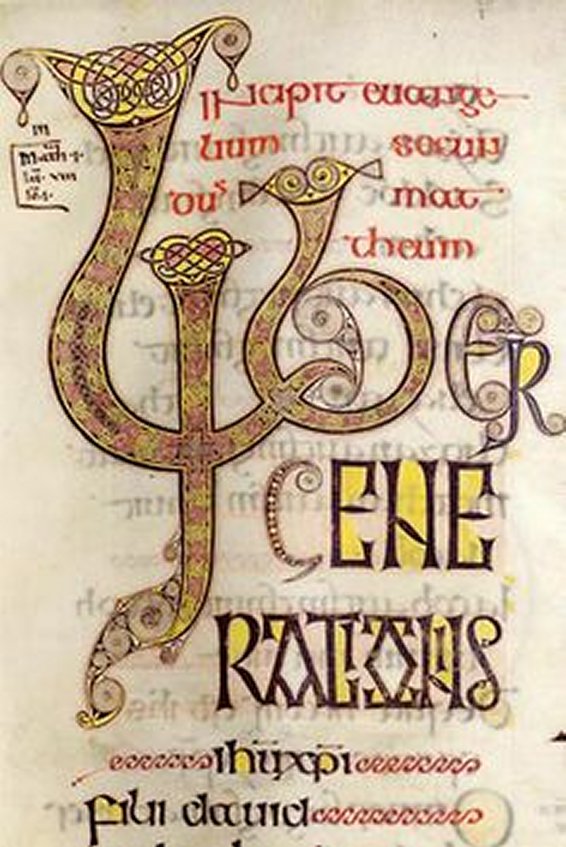 Incipit euange
lium secun
dus mat
theum
m
Liber
GENE
RATIONIS
ihū xp̄i
filii dauid